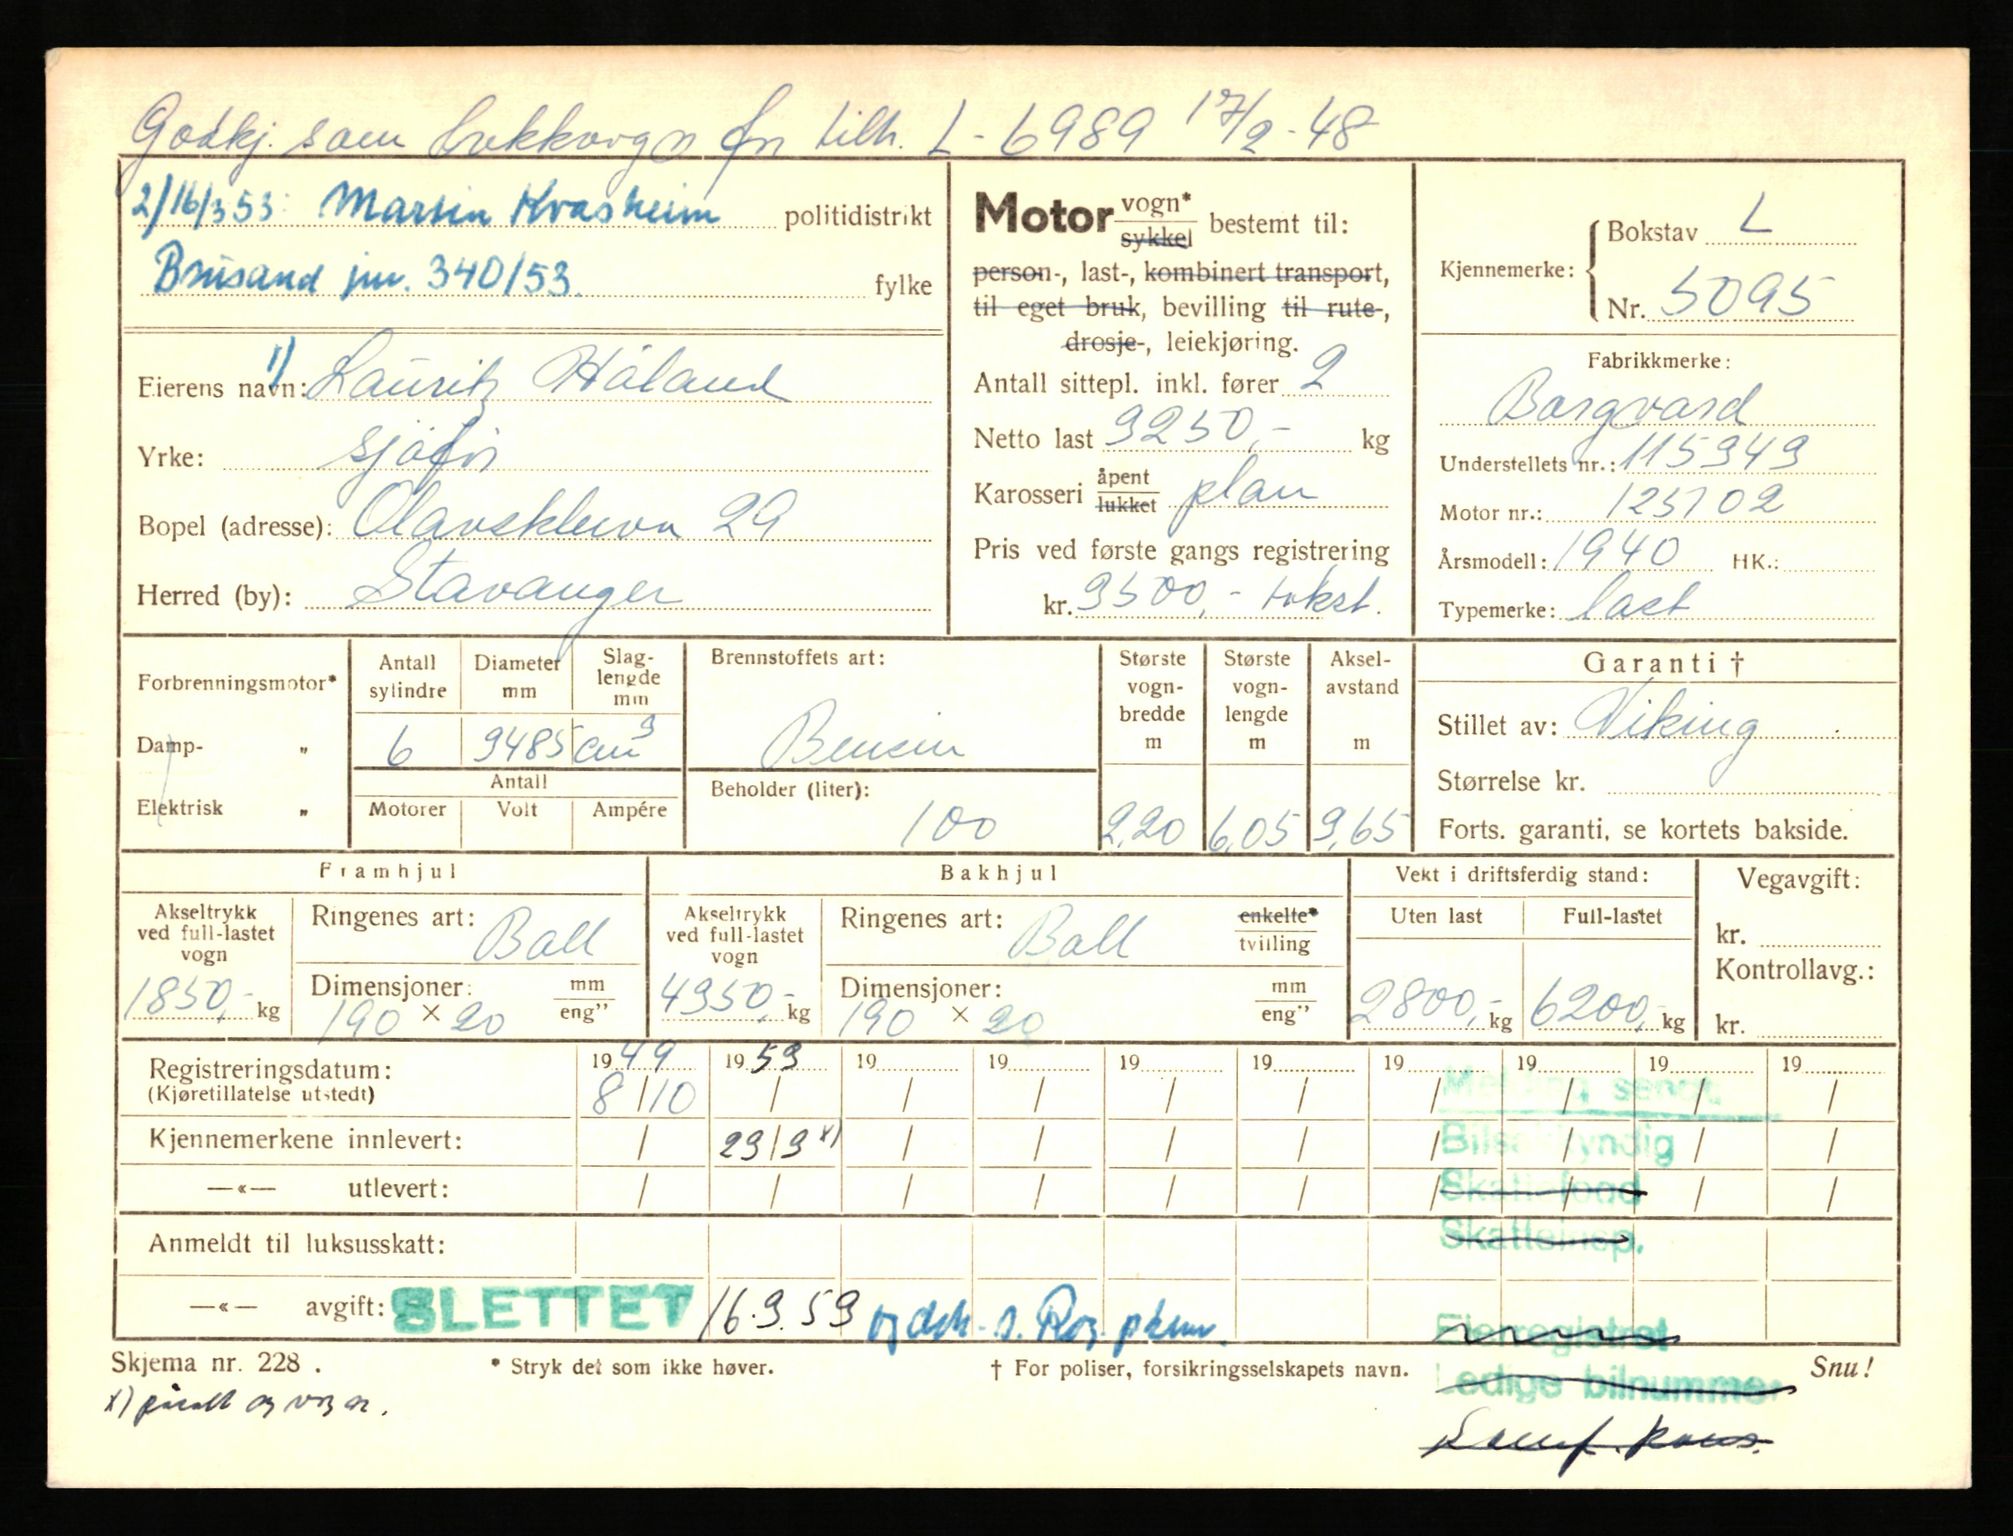 Godkj. som trekkvogn for tilh. L-6989 17/2-48
2/16/3 53: Martin Kvasheim politidistrikt
Brusand jnr. 340/53. fylke
1)
Eierens navn: Lauritz Håland
Yrke: sjåfør
Bopel (adresse): Olavskleiva 29
Herred (by): Stavanger
Motor vogn* sykkel bestemt til:
person-, last-, kombinert transport,
til eget bruk, bevilling til rute-,
drosje-, leiekjøring.
Antall sittepl. inkl. fører 2
Netto last 3250,- kg
Karosseri åpent lukket plan
Pris ved første gangs registrering
kr. 3500,- takst.
Kjennemerke: Bokstav L
Nr. 5095
Fabrikkmerke:
Borgvard
Understellets nr.: 115349
Motor nr.: 125702
Årsmodell: 1940 HK.:
Typemerke: last
Forbrenningsmotor*
Damp- "
Elektrisk "
Antall sylindre Diameter mm Slag-lengde mm
6 3485 cm3
Antall
Motorer Volt Ampére
Brennstoffets art:
Bensin
Beholder (liter):
100
Største vogn-bredde m
2,20
Største vogn-lengde m
6,05
Aksel-avstand m
3,65
Garanti †
Stillet av: Viking
Størrelse kr.
Forts. garanti, se kortets bakside.
Framhjul
Akseltrykk ved full-lastet vogn
1850,- kg
Ringenes art: Ball
Dimensjoner: mm eng"
190 × 20
Bakhjul
Akseltrykk ved full-lastet vogn
4350,- kg
Ringenes art: Ball enkelte* tvilling
Dimensjoner: mm eng"
190 × 20
Vekt i driftsferdig stand:
Uten last Full-lastet
2800,- kg 6200,- kg
Vegavgift:
kr.
Kontrollavg.:
kr.
Registreringsdatum: 1949 1953 19 19 19 19 19 19 19 19
(Kjøretillatelse utstedt) 8/10 / / / / / / / / /
Kjennemerkene innlevert: / 23/3 x) / / / / / / / /
—«— utlevert: / / / / / / / / / /
Anmeldt til luksusskatt:
—«— avgift: SLETTET 16.3.53
Melding sendt:
Bilsakkyndig
Skattefond
Skatteinsp.
Eierregistret
Ledige bilnummer
Skjema nr. 228.
* Stryk det som ikke høver.
† For poliser, forsikringsselskapets navn.
Snu!